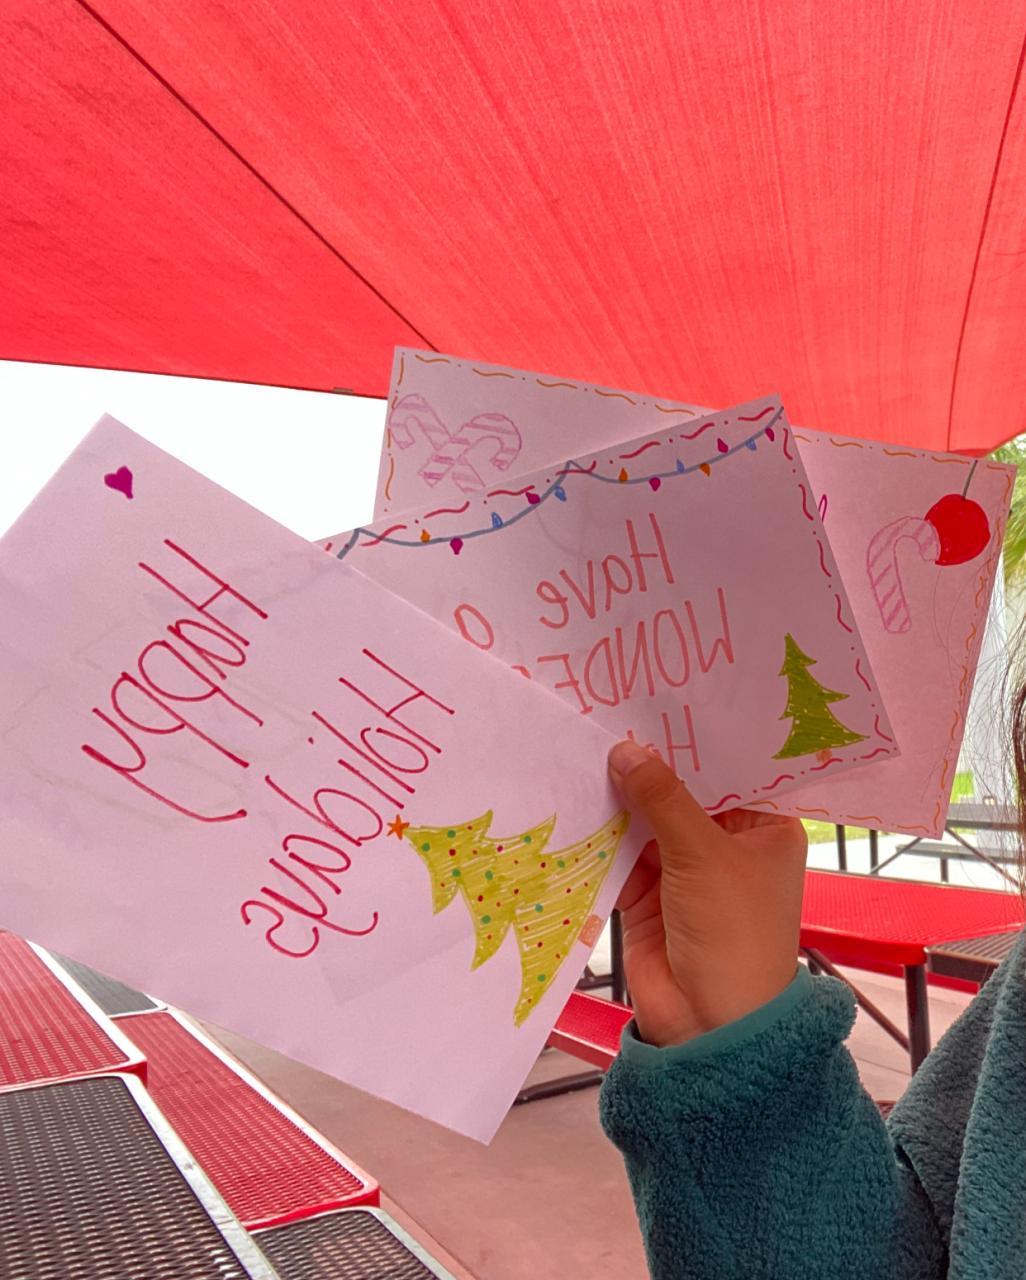 Happy
Holidays
Have a
WONDE
H